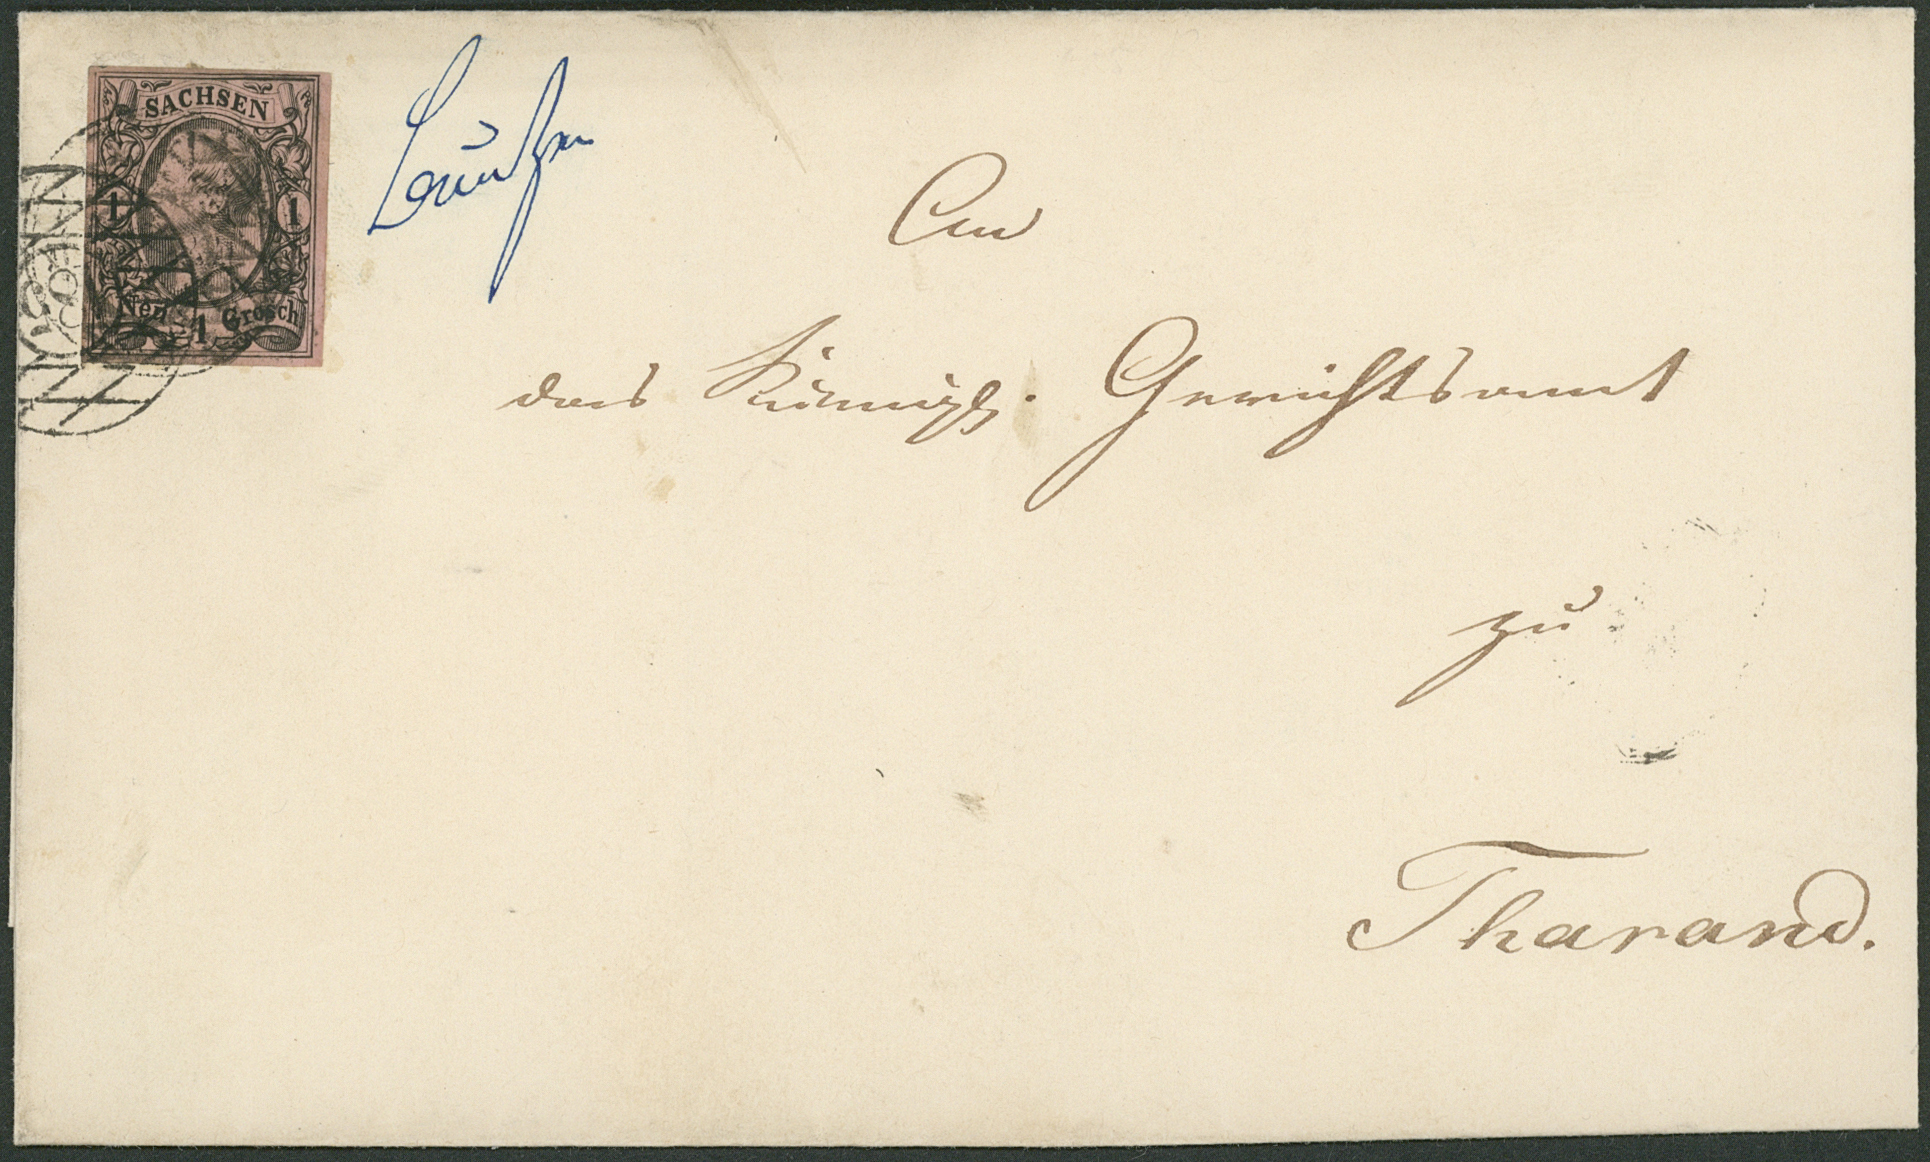 SACHSEN
1 1
Neu 1 Grosch
Bautzen
An
das Königl. Gerichtsamt
zu
Tharand.